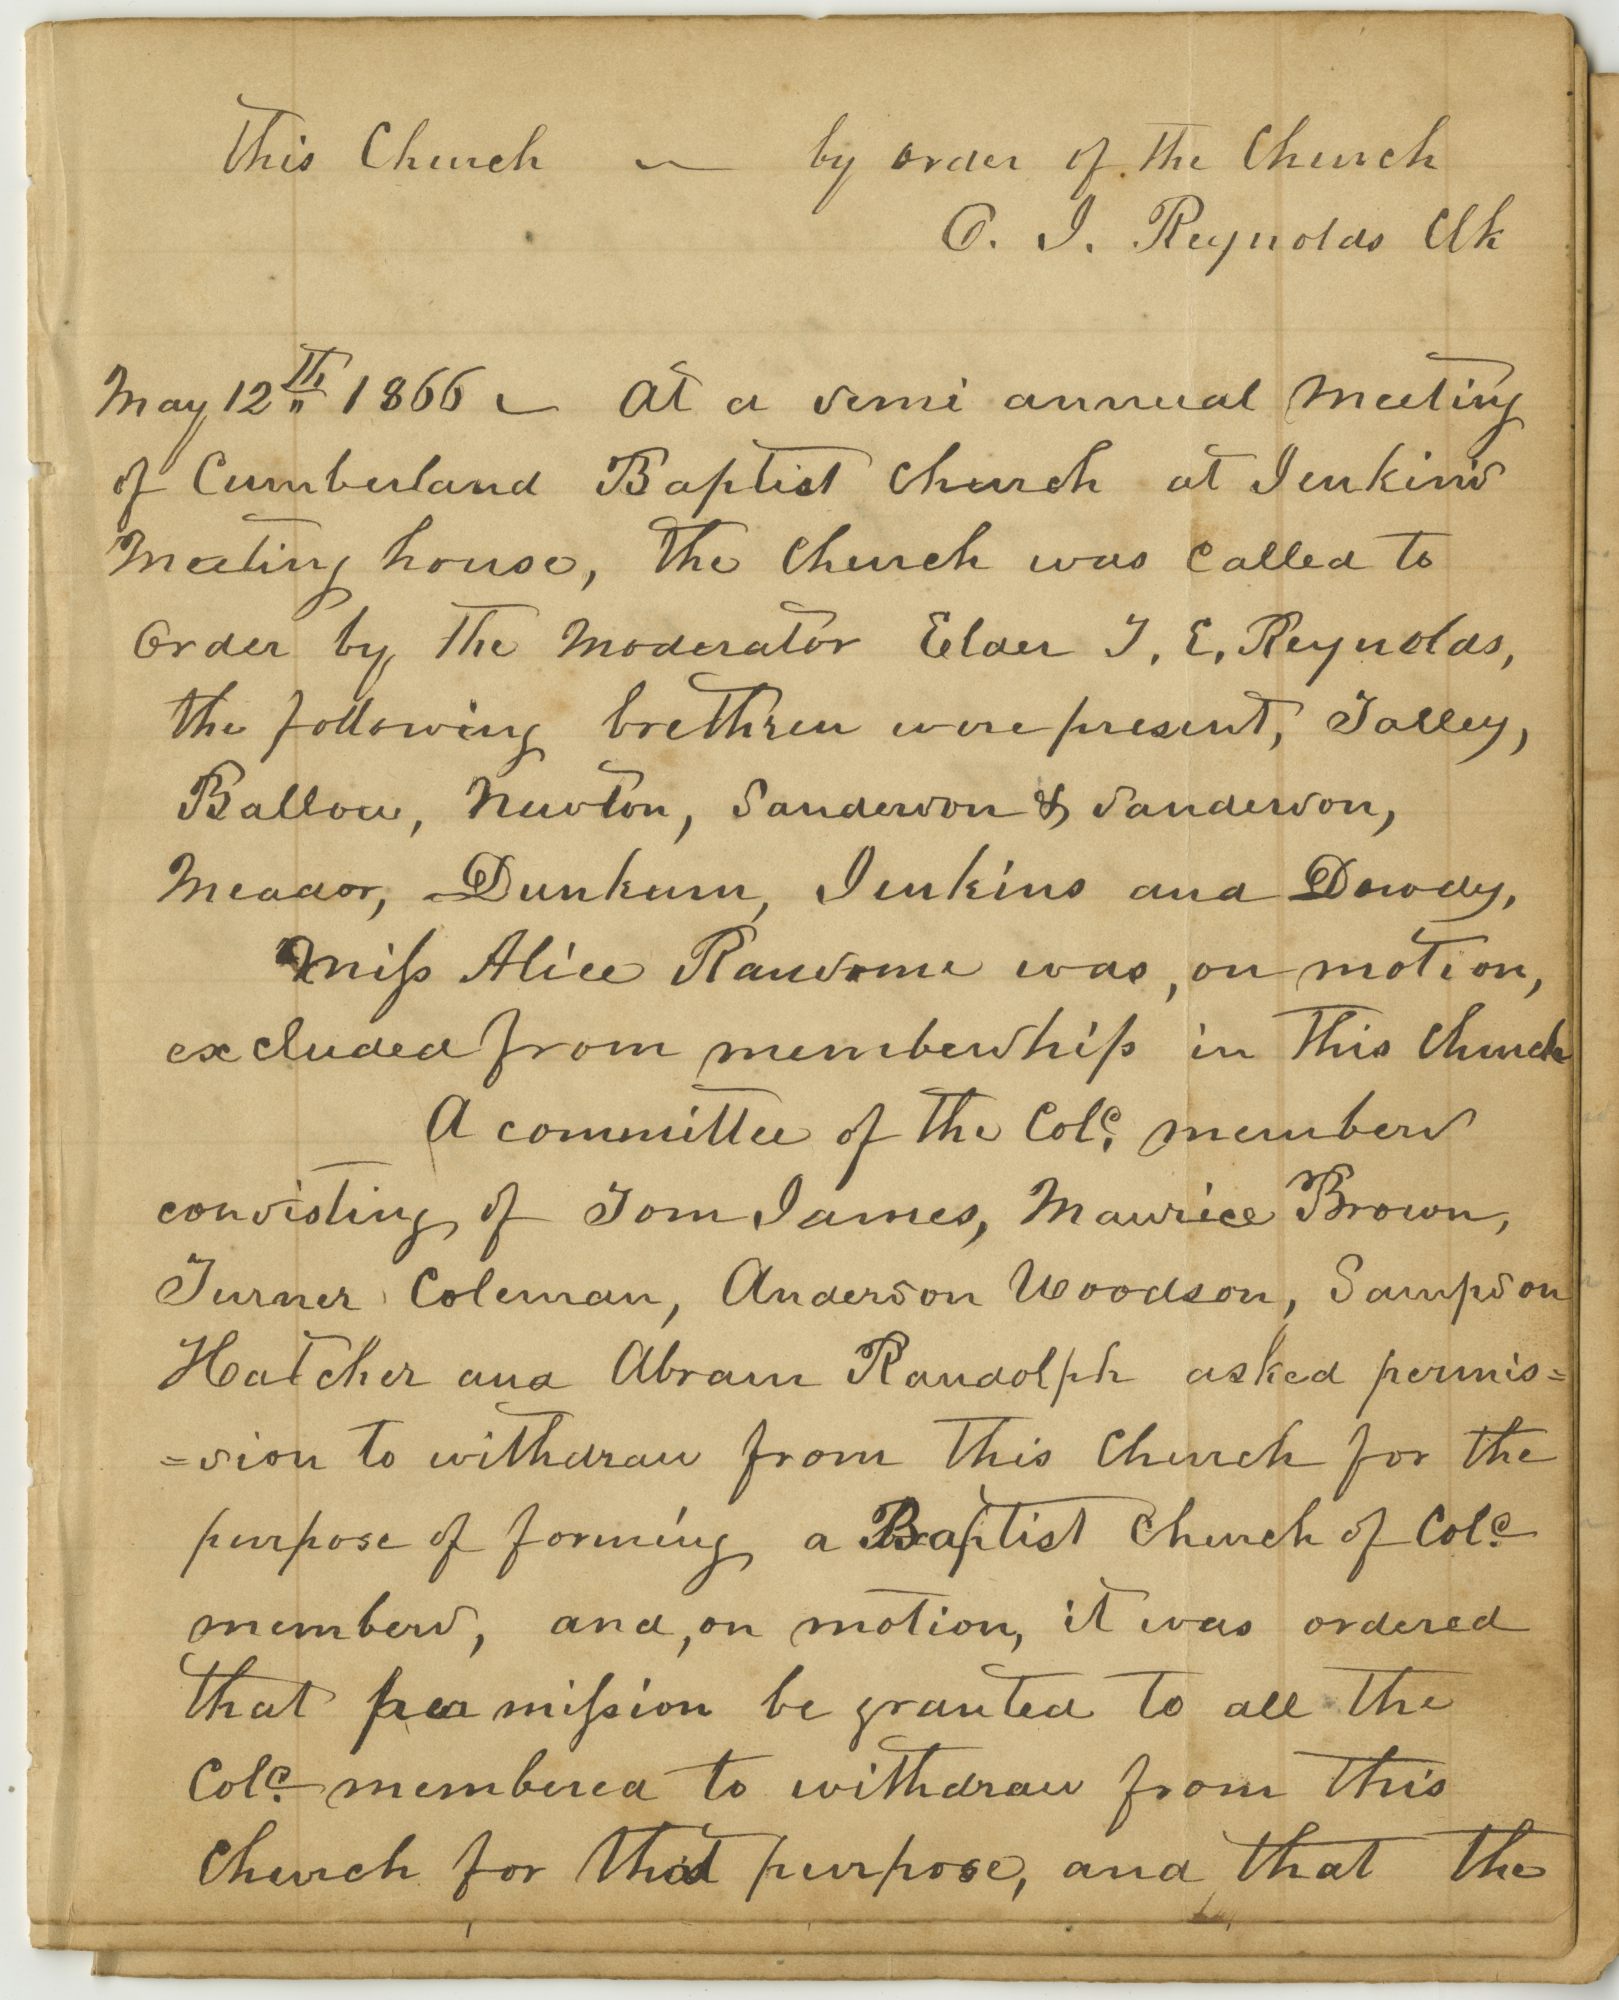 This Church — by order of the Church
O. I. Reynolds Clk
May 12th 1866 — At a semi annual Meeting
of Cumberland Baptist Church at Jenkins
Meeting house, the Church was called to
Order by the Moderator Elder J. E. Reynolds,
the following brethren were present, Talley,
Ballow, Newton, Sanderson & Sanderson,
Meador, Dunkum, Jenkins and Dowdy,
Miss Alice Ransome was, on motion,
excluded from membership in this Church
A committee of the Col'd members
consisting of Tom James, Maurice Brown,
Turner Coleman, Anderson Woodson, Sampson
Hatcher and Abram Randolph asked permis=
=sion to withdraw from this Church for the
purpose of forming a Baptist Church of Col'd
members, and, on motion, it was ordered
that permission be granted to all the
Col'd membered to withdraw from this
Church for that purpose, and that the